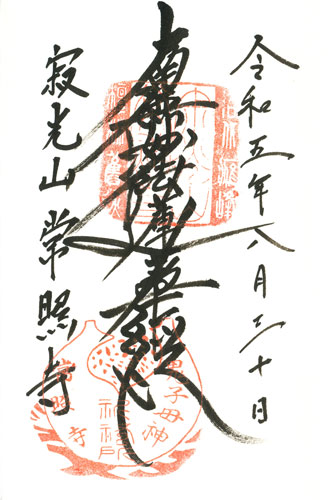 令和五年八月三十日
南無妙法蓮華経
寂光山 常照寺
鬼子母神
祈祷所
常照寺